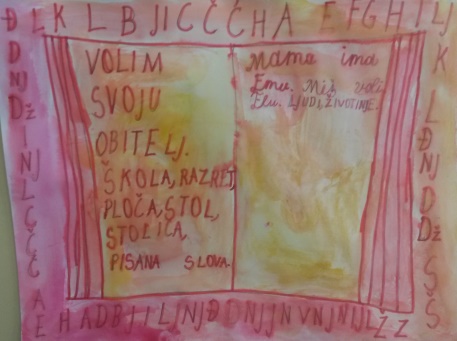 L K L B J I C Č Ć H A E F G H I LJ
Đ D NJ Dž I NJ L C Č Ć A E
VOLIM
SVOJU
OBITELJ.
ŠKOLA, RAZRET,
PLOČA, STOL,
STOLICA,
PISANA SLOVA.
Mama ima
Emu. Miš voli
Elu. LJUDI, ŽIVOTINJE.
K L Đ NJ D Dž S Š
H A D B J I L NJ Đ